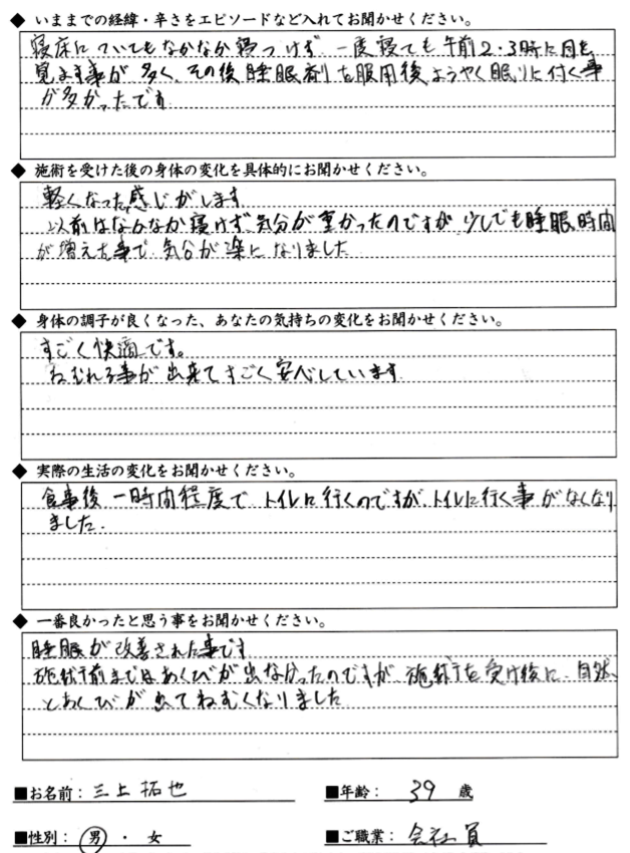 ◆ いままでの経緯・辛さをエピソードなど入れてお聞かせください。
寝床についてもなかなか寝つけず、一度寝ても午前2・3時に目を
覚ます事が多く、その後睡眠剤を服用後ようやく眠りに付く事
が多かったです
◆ 施術を受けた後の身体の変化を具体的にお聞かせください。
軽くなった感じがします
以前はなかなか寝けず、気分が重かったのですが、少しでも睡眠時間
が増えた事で、気分が楽になりました
◆ 身体の調子が良くなった、あなたの気持ちの変化をお聞かせください。
すごく快適です。
ねむれる事が出来てすごく安心しています
◆ 実際の生活の変化をお聞かせください。
食事後一時間程度でトイレに行くのですが、トイレに行く事がなくなり
ました。
◆ 一番良かったと思う事をお聞かせください。
睡眠が改善された事です
施術前まではあくびが出なかったのですが、施術を受け後に、自然
とあくびが出てねむくなりました
■お名前：三上拓也 ■年齢：39 歳
■性別：男・女 ■ご職業：会社員